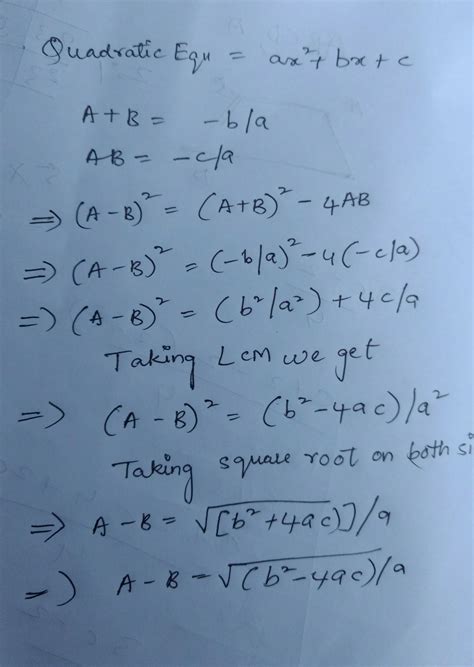 Quadratic Equ = ax²+ bx + c
A + B = -b/a
AB = -c/a
⇒ (A - B)² = (A+B)² - 4AB
⇒ (A - B)² = (-b/a)² - 4(-c/a)
⇒ (A - B)² = (b²/a²) + 4c/a
Taking LCM we get
⇒ (A - B)² = (b² - 4ac)/a²
Taking square root on both si
⇒ A - B = √[b² + 4ac)]/a
⇒ A - B = √(b² - 4ac)/a